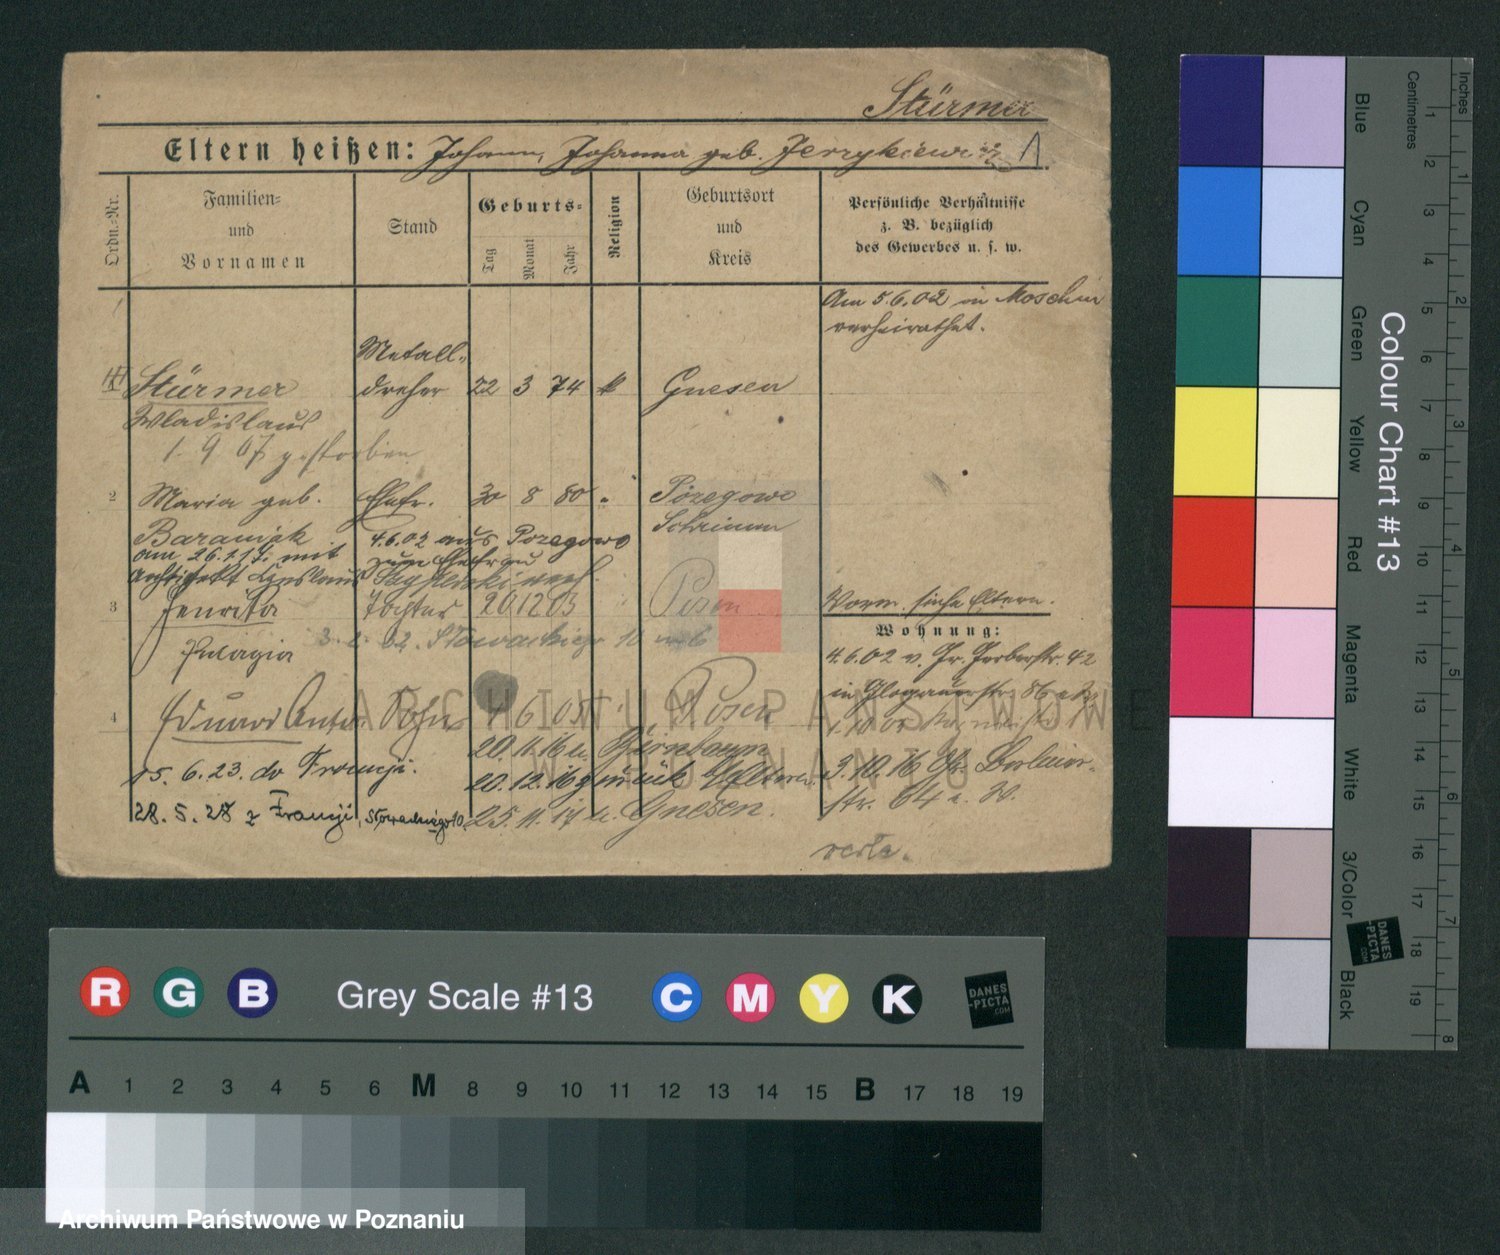 Stürmer
Eltern heißen: Johann, Johanna geb. Jerzykiewicz 1
Ordn.-Nr.
Familien-
und
Vornamen
Stand
Geburts-
Tag
Monat
Jahr
Religion
Geburtsort
und
Kreis
Persönliche Verhältnisse
z. B. bezüglich
des Gewerbes u. s. w.
Am 5.6.02 in Moschin
verheirathet.
Metall-
Stürmer dreher 22 3 74 k Gnesen
Wladislaus
1. 9 07 gestorben
2 Maria geb. Ehefr. 30 8 80 " Pozegowo
Baraniak 4.6.02 aus Pozegowo Schrimm
am 26.1.17. mit zum Ehefrau
Architekt verh.
3 Henrita Tochter 20 12 03 " Posen
Pelagia Słowackiego 10
Vorm. siehe Eltern.
Wohnung:
4.6.02 v. Gr. Gerberstr. 42
in Glogauerstr. 86
4 Eduard Anton Sohn 6 05 " Posen
20.11.16 n. Birnbaum
15. 6. 23. do Francji. 20.12.16 zurück Eltern
3.10.16 Gr. Berliner-
str. 64
28. 5. 28 z Francji, Słowackiego 10. 25.11.17 n. Gnesen.
verte.
ARCHIWUM PAŃSTWOWE
W POZNANIU
Colour Chart #13
Blue
Cyan
Green
Yellow
Red
Magenta
White
3/Color
Black
Centimetres
1 2 3 4 5 6 7 8 9 10 11 12 13 14 15 16 17 18 19
Inches
1 2 3 4 5 6 7 8
DANES
-PICTA
.COM
R G B Grey Scale #13 C M Y K
DANES
-PICTA
.COM
A 1 2 3 4 5 6 M 8 9 10 11 12 13 14 15 B 17 18 19
Archiwum Państwowe w Poznaniu